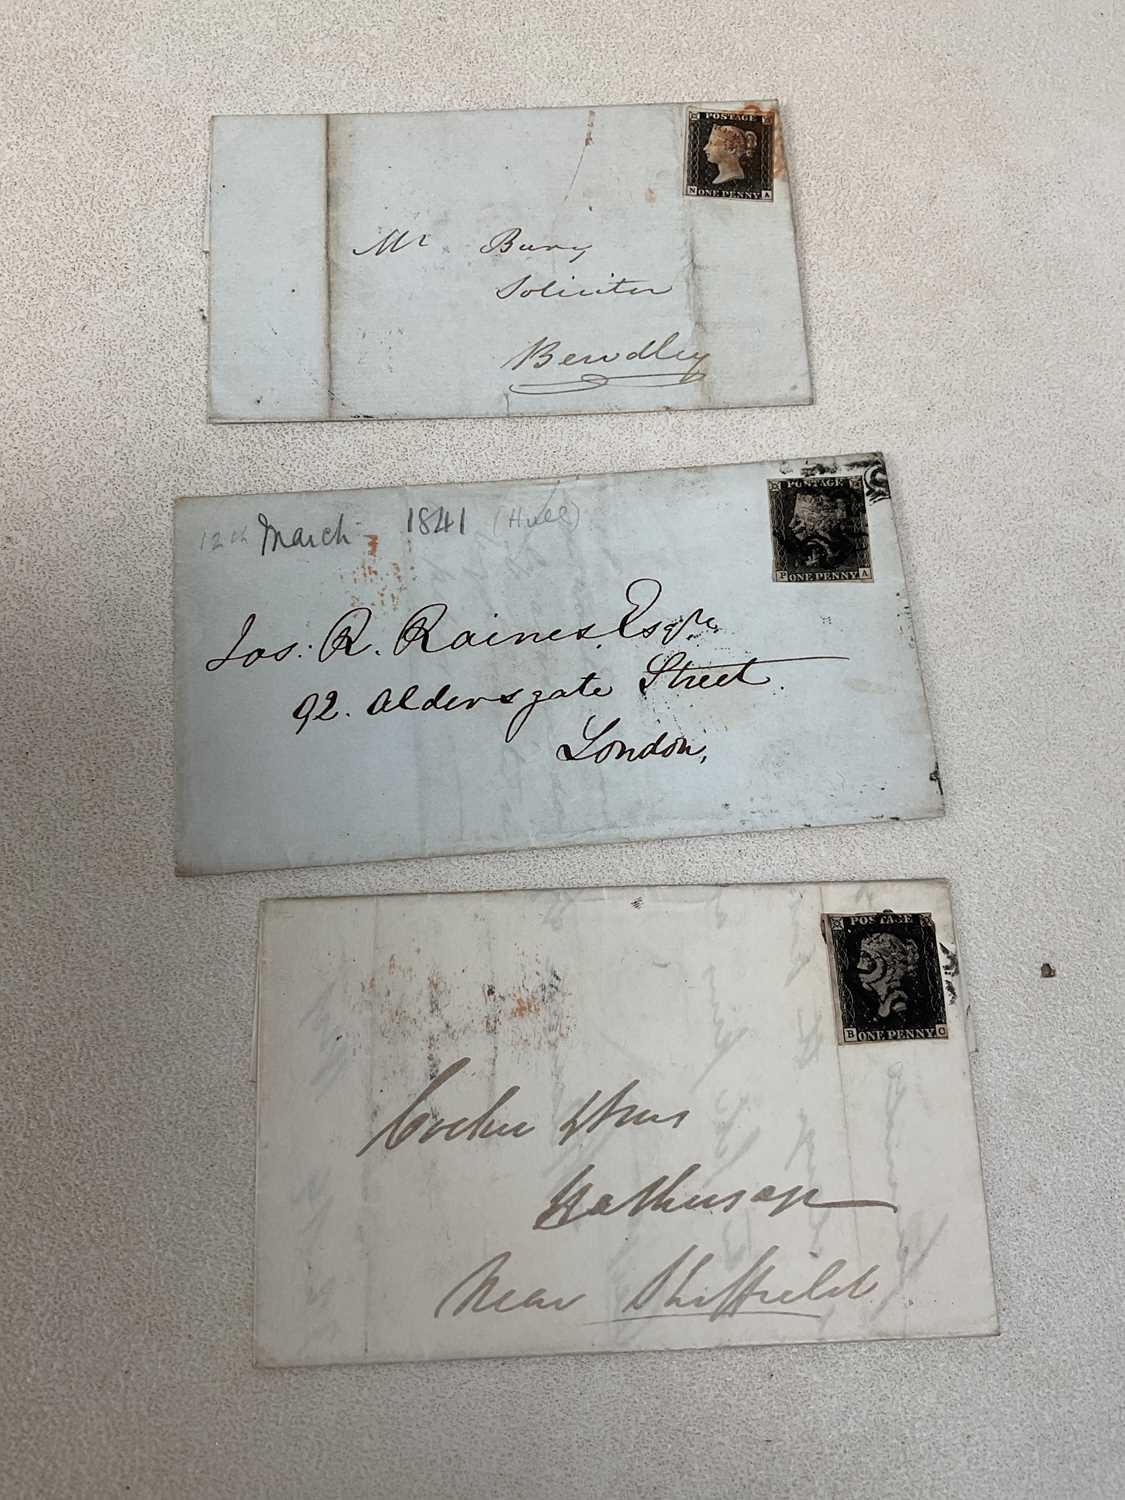 POSTAGE
N ONE PENNY A
Mr Bury
Solicitor
Bewdley
12th March 1841 (Hull)
POSTAGE
P ONE PENNY A
Jos: R. Raines Esqre
92. Aldersgate Street
London,
POSTAGE
B ONE PENNY C
Hathersage
Near Sheffield